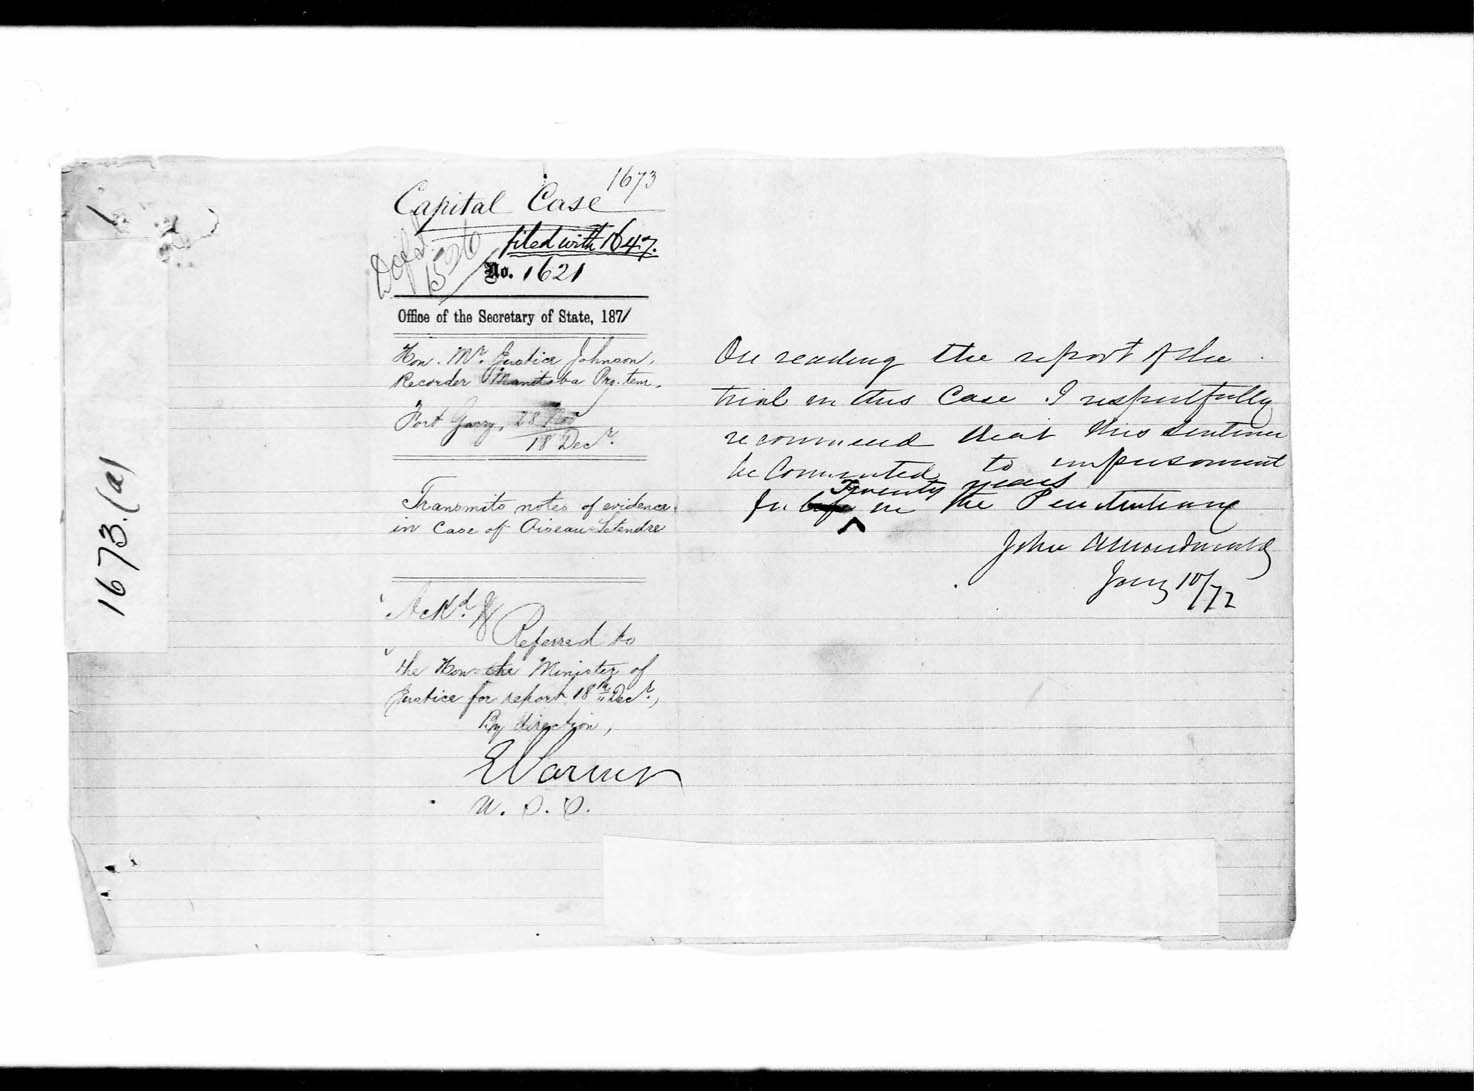 1673
Capital Case
filed with 1647.
1526
No. 1621
Office of the Secretary of State, 1871
Hon. Mr. Justice Johnson,
Recorder Manitoba Pro. tem.
Fort Garry, 28 Nov
18 Decr.
Transmits notes of evidence
in Case of Oiseau Letendre
Ackd. &
Referred to
the Hon the Minister of
Justice for report 18th Decr.,
By direction,
U. S. S.
On reading the report of the
trial in this Case I respectfully
recommend that this sentence
be Commuted to imprisonment
Twenty years
for life in the Penitentiary
John A Macdonald
Jany 10/72
1673.(a)
1